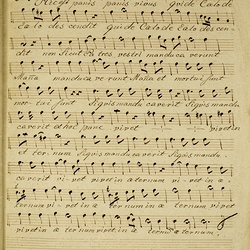 Hic est panis panis vivus qui de Caelo de
Caelo descendit qui de Caelo de Caelo des cen
dit non sicut Patres vestri manduca verunt
Maña manduca verunt Maña et mortui sunt
mortui sunt Si quis manducaverit Si quis mandu
caverit ex hoc pane vivet
num Si quis manducaverit Si quis mandu
caverit vi vet vivet in aeternum vi vet in ae
ternum vi vet in ae ternum in ae ternum vivet
vivet in ae ternum